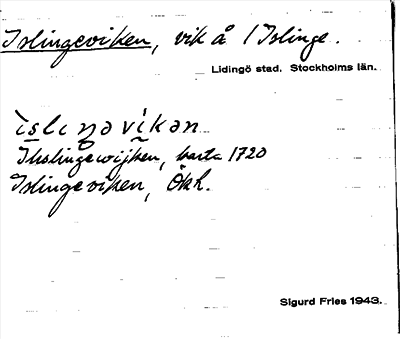 Islingeviken, vik å / Islinge.
Lidingö stad. Stockholms län.
ìslıŋəvíkən
Ihslingewijken, karta 1720
Islingeviken, Ökk.
Sigurd Fries 1943.